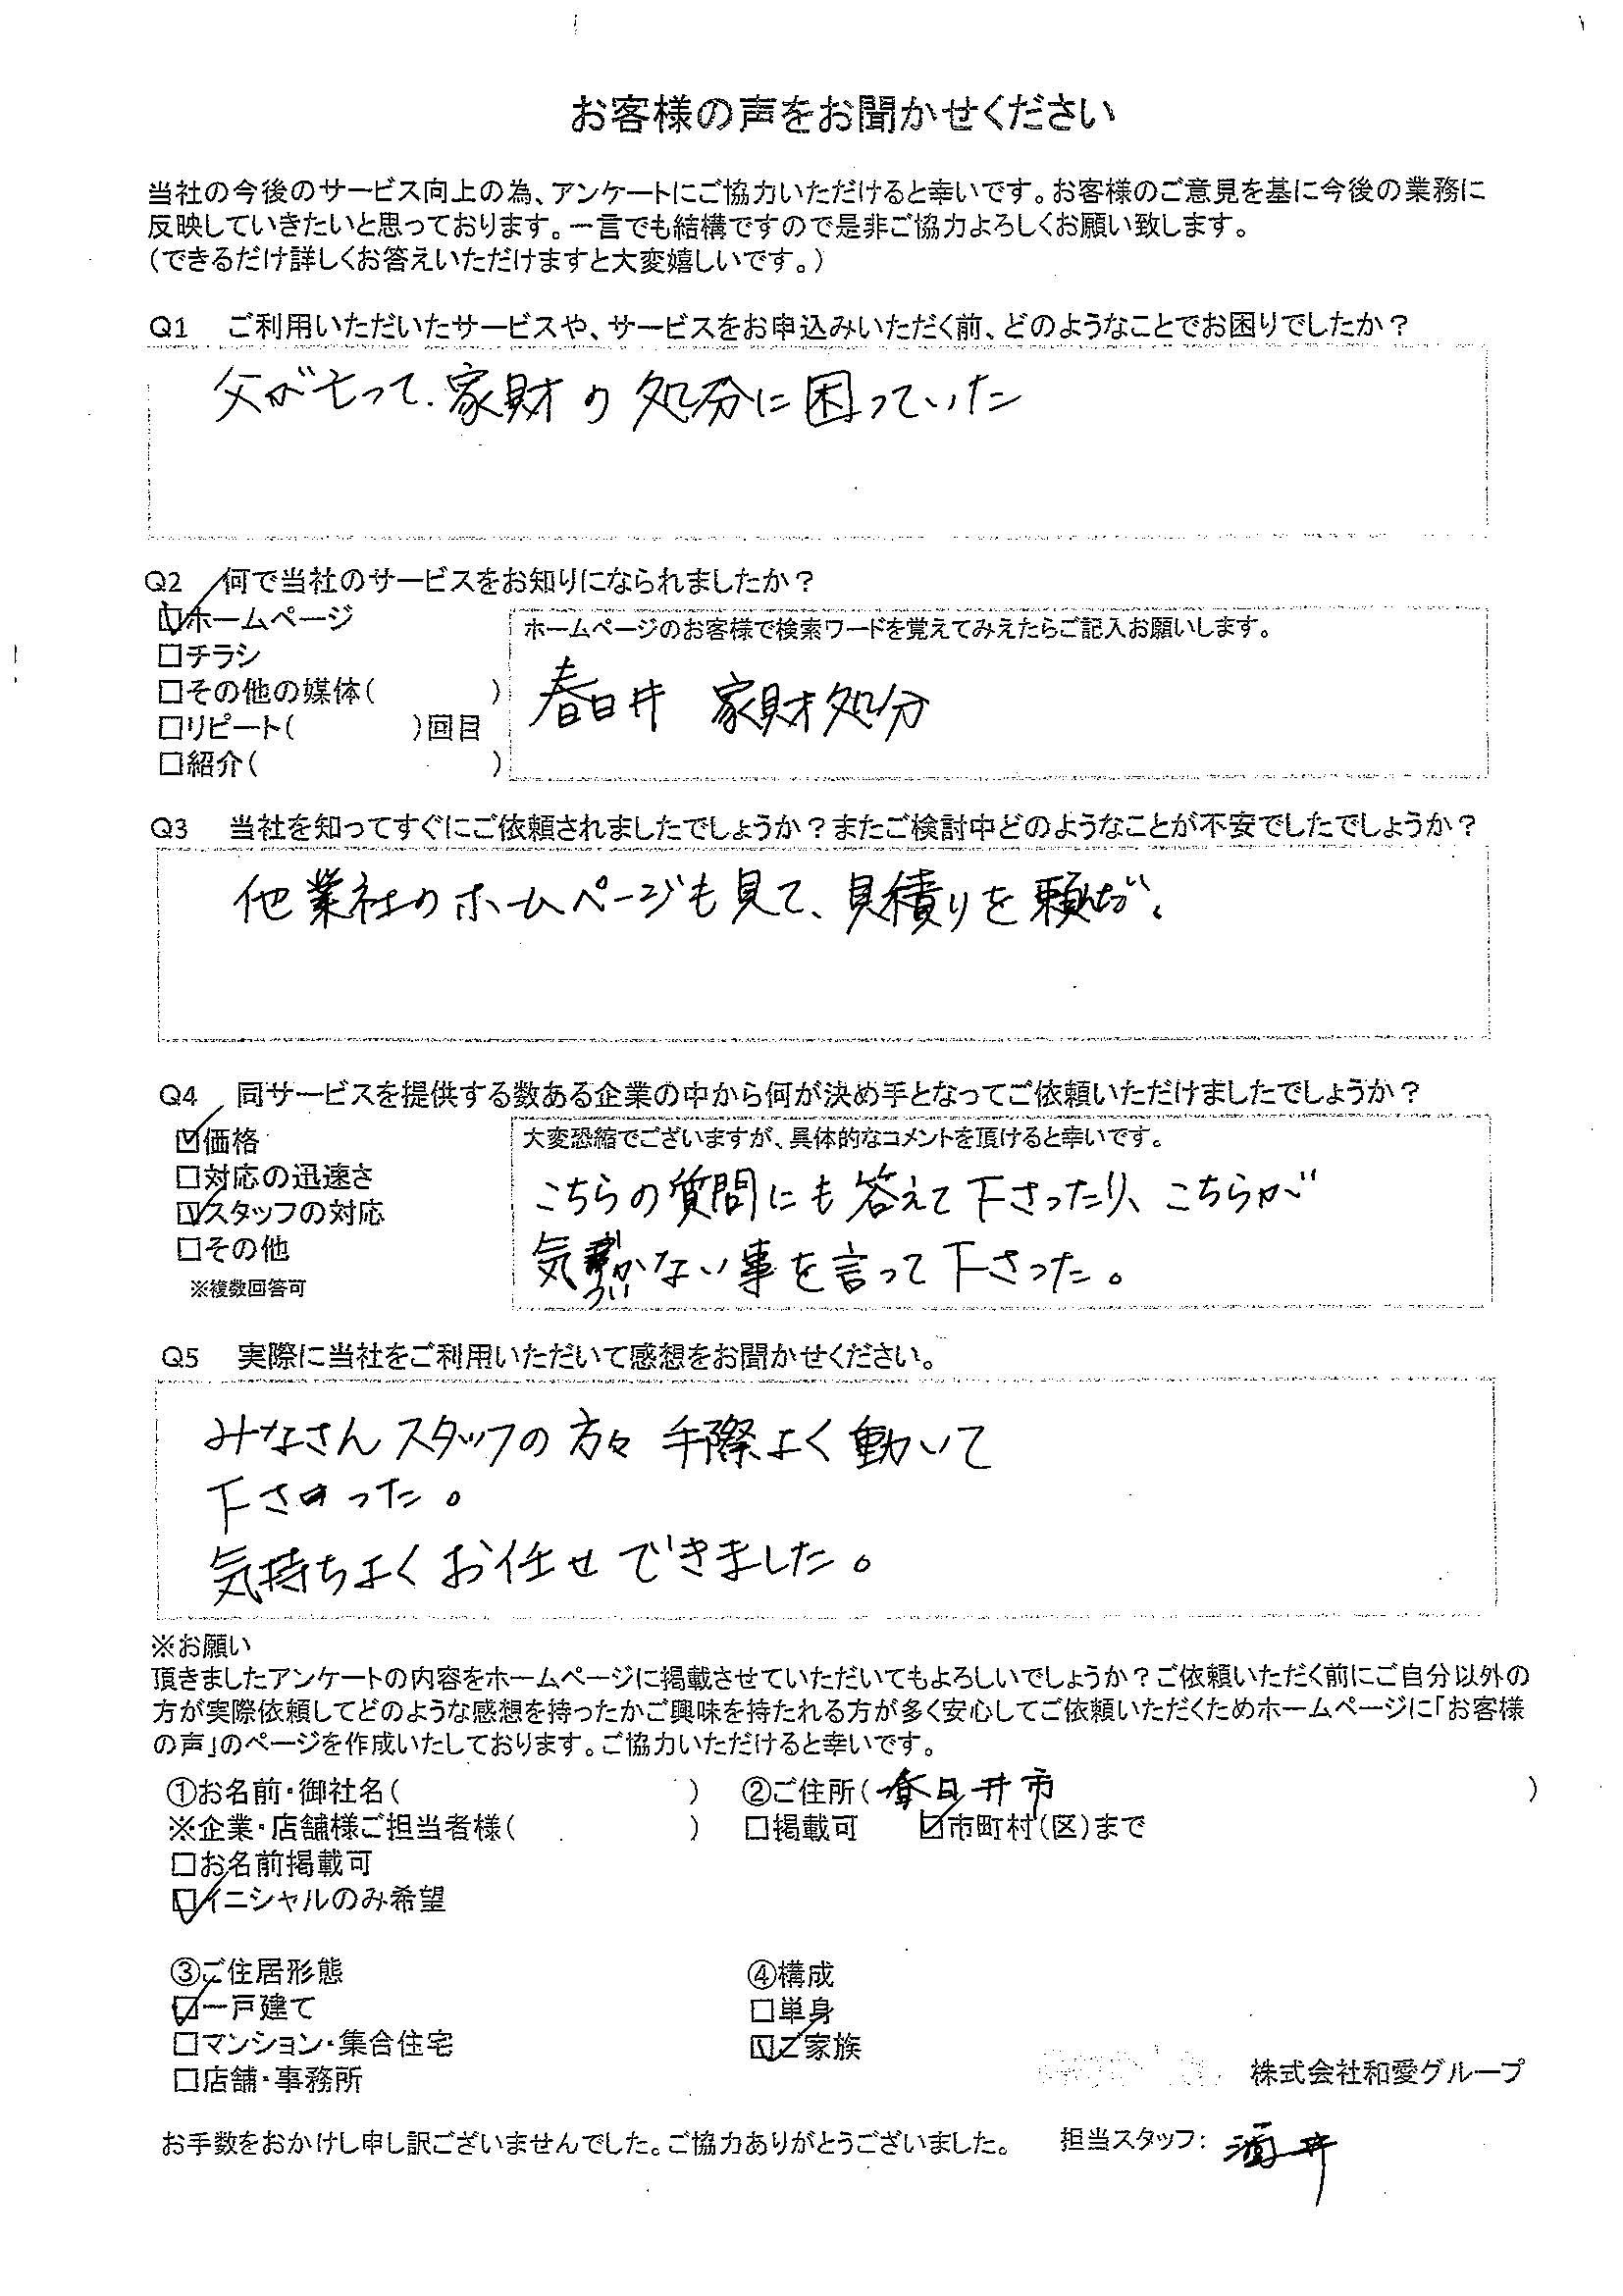 お客様の声をお聞かせください
当社の今後のサービス向上の為、アンケートにご協力いただけると幸いです。お客様のご意見を基に今後の業務に
反映していきたいと思っております。一言でも結構ですので是非ご協力よろしくお願い致します。
(できるだけ詳しくお答えいただけますと大変嬉しいです。)
Q1 ご利用いただいたサービスや、サービスをお申込みいただく前、どのようなことでお困りでしたか?
父が亡って、家財の処分に困っていた
Q2 何で当社のサービスをお知りになられましたか?
☑ホームページ
□チラシ
□その他の媒体( )
□リピート( )回目
□紹介( )
ホームページのお客様で検索ワードを覚えてみえたらご記入お願いします。
春日井 家財処分
Q3 当社を知ってすぐにご依頼されましたでしょうか?またご検討中どのようなことが不安でしたでしょうか?
他業社のホームページも見て、見積りを頼んだ。
Q4 同サービスを提供する数ある企業の中から何が決め手となってご依頼いただけましたでしょうか?
☑価格
□対応の迅速さ
☑スタッフの対応
□その他
※複数回答可
大変恐縮でございますが、具体的なコメントを頂けると幸いです。
こちらの質問にも答えて下さったり、こちらが
気づかない事を言って下さった。
Q5 実際に当社をご利用いただいて感想をお聞かせください。
みなさんスタッフの方々 手際よく動いて
下さった。
気持ちよくお任せできました。
※お願い
頂きましたアンケートの内容をホームページに掲載させていただいてもよろしいでしょうか?ご依頼いただく前にご自分以外の
方が実際依頼してどのような感想を持ったかご興味を持たれる方が多く安心してご依頼いただくためホームページに「お客様
の声」のページを作成いたしております。ご協力いただけると幸いです。
①お名前・御社名( ) ②ご住所(春日井市 )
※企業・店舗様ご担当者様( ) □掲載可 ☑市町村(区)まで
□お名前掲載可
☑イニシャルのみ希望
③ご住居形態 ④構成
☑一戸建て □単身
□マンション・集合住宅 ☑ご家族
□店舗・事務所
株式会社和愛グループ
お手数をおかけし申し訳ございませんでした。ご協力ありがとうございました。 担当スタッフ: 酒井